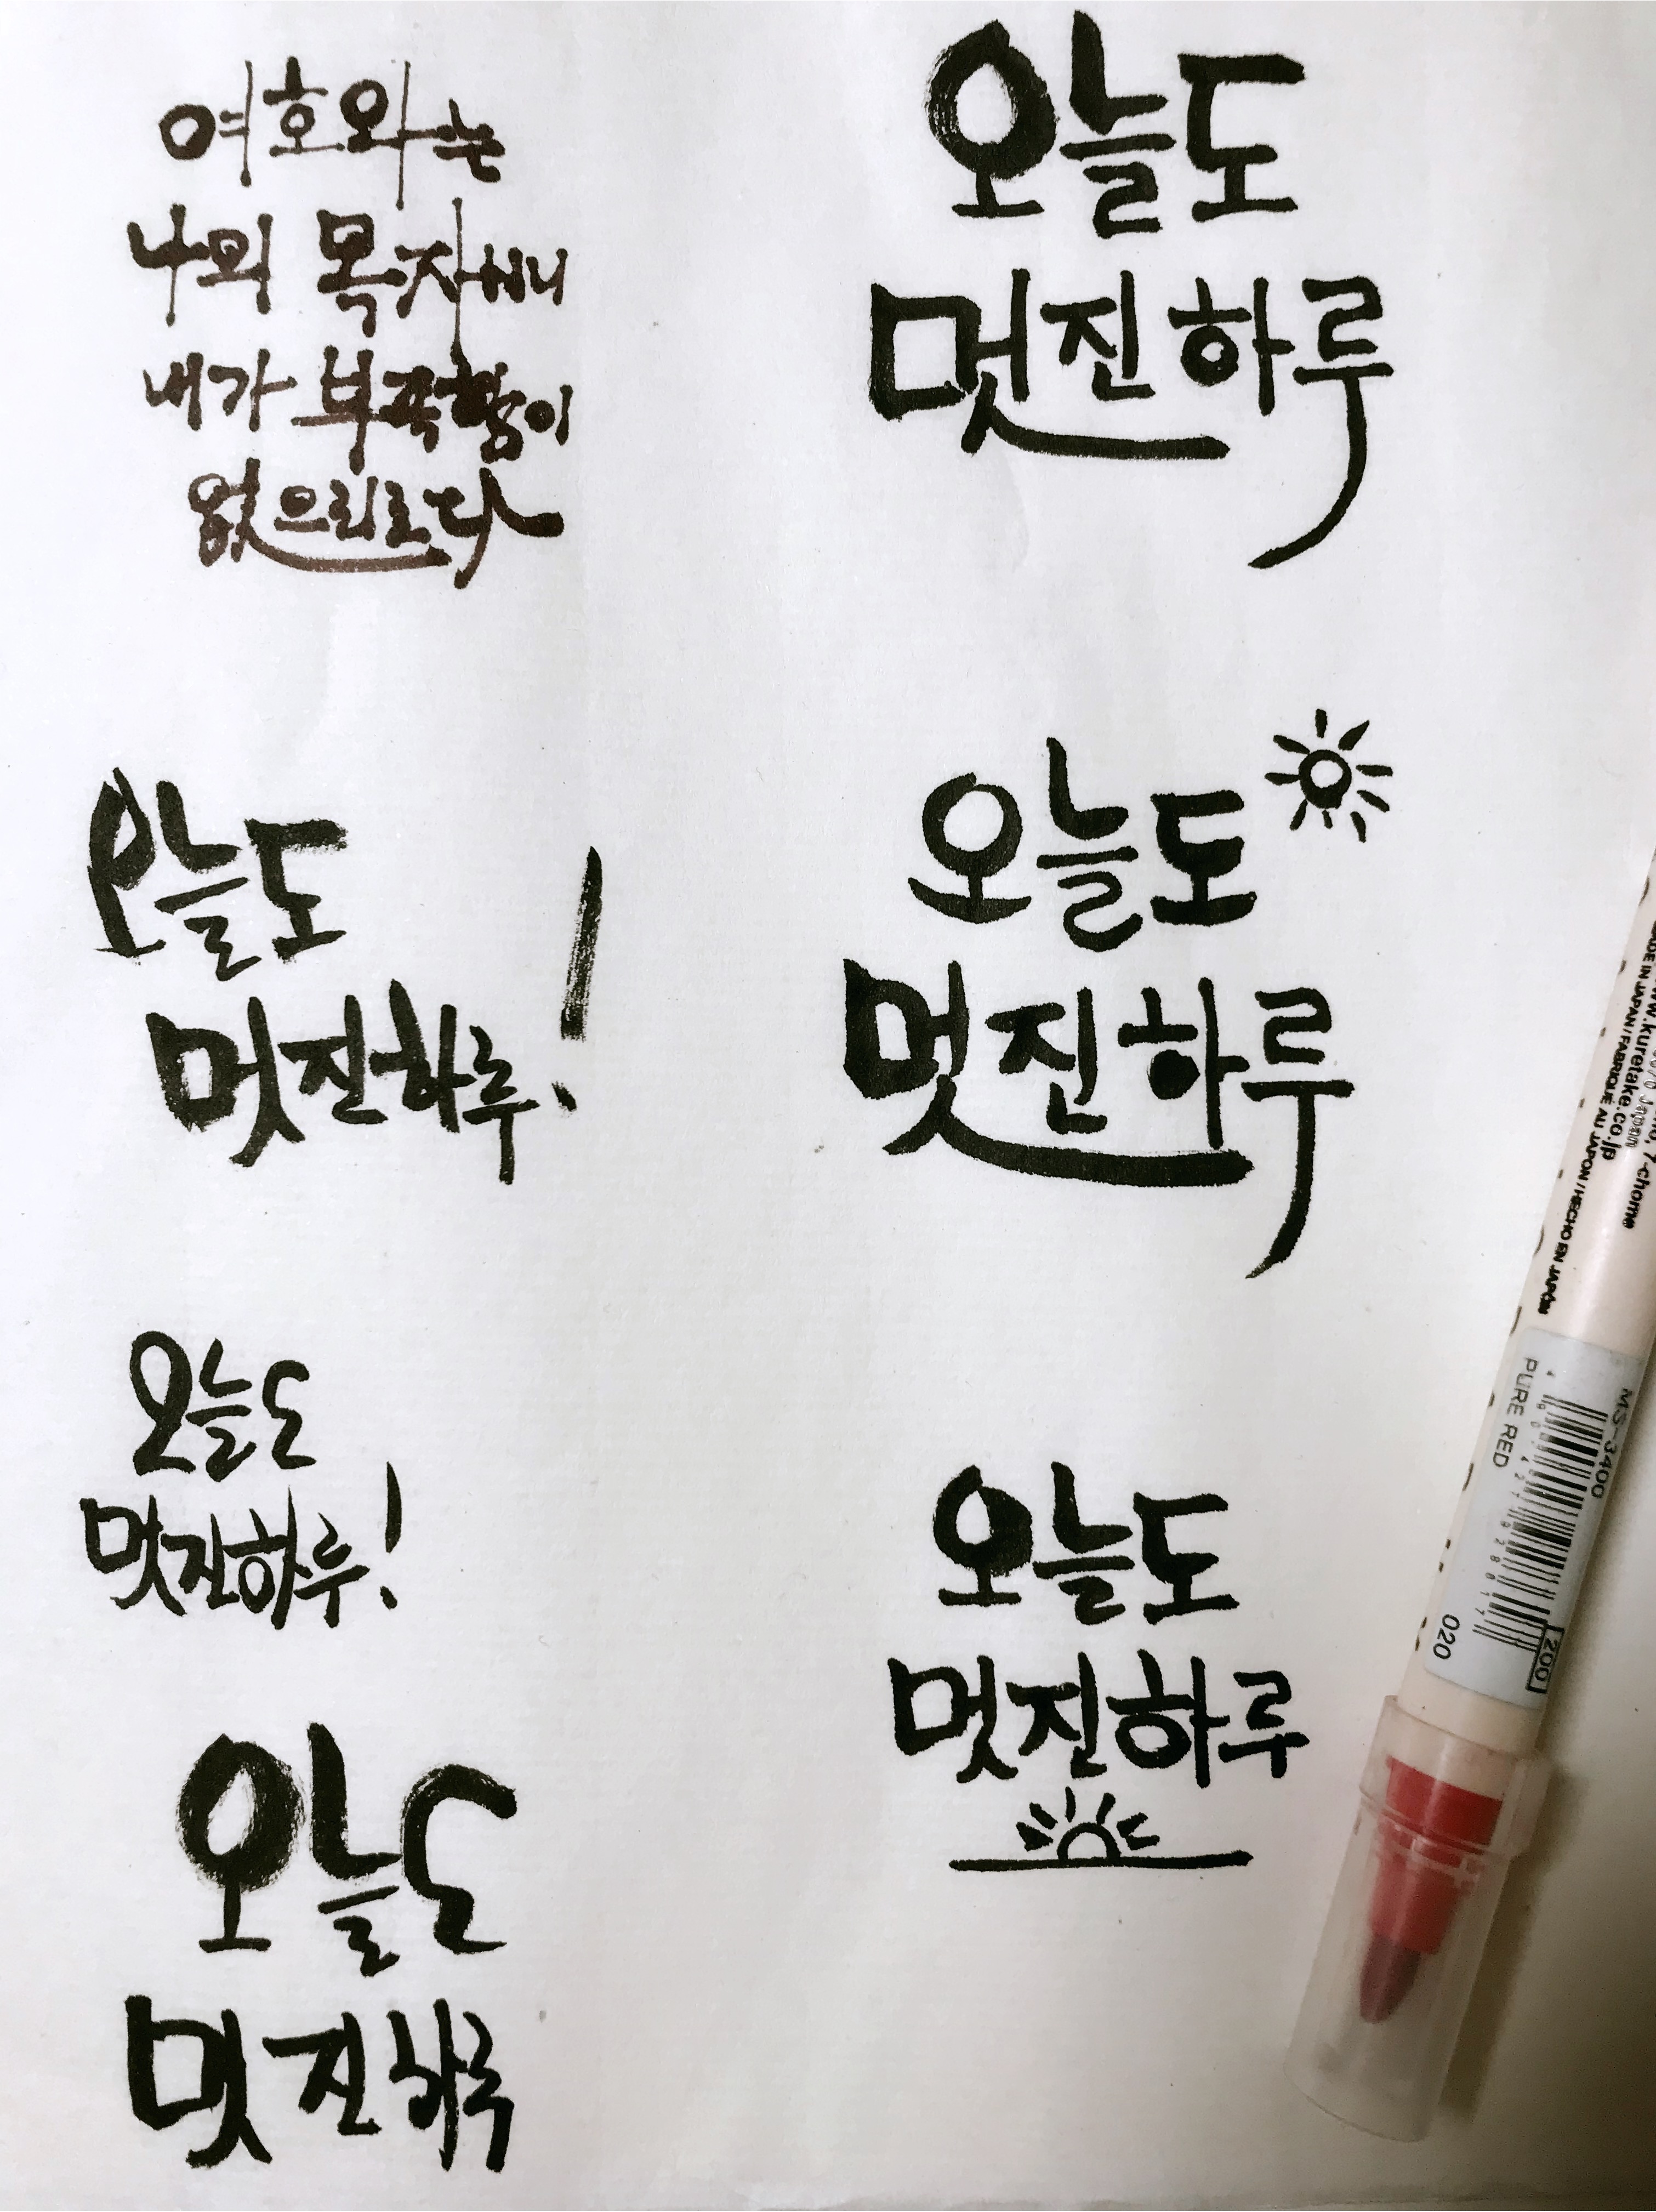 여호와는
나의 목자시니
내가 부족함이
없으리로다
오늘도
멋진하루!
오늘도
멋진하루!
오늘도
멋진하루
오늘도
멋진하루
오늘도
멋진하루
오늘도
멋진하루
www.kuretake.co.jp
MADE IN JAPAN / FABRIQUÉ AU JAPON / HECHO EN JAPÓN
MS-3400
PURE RED
200
020